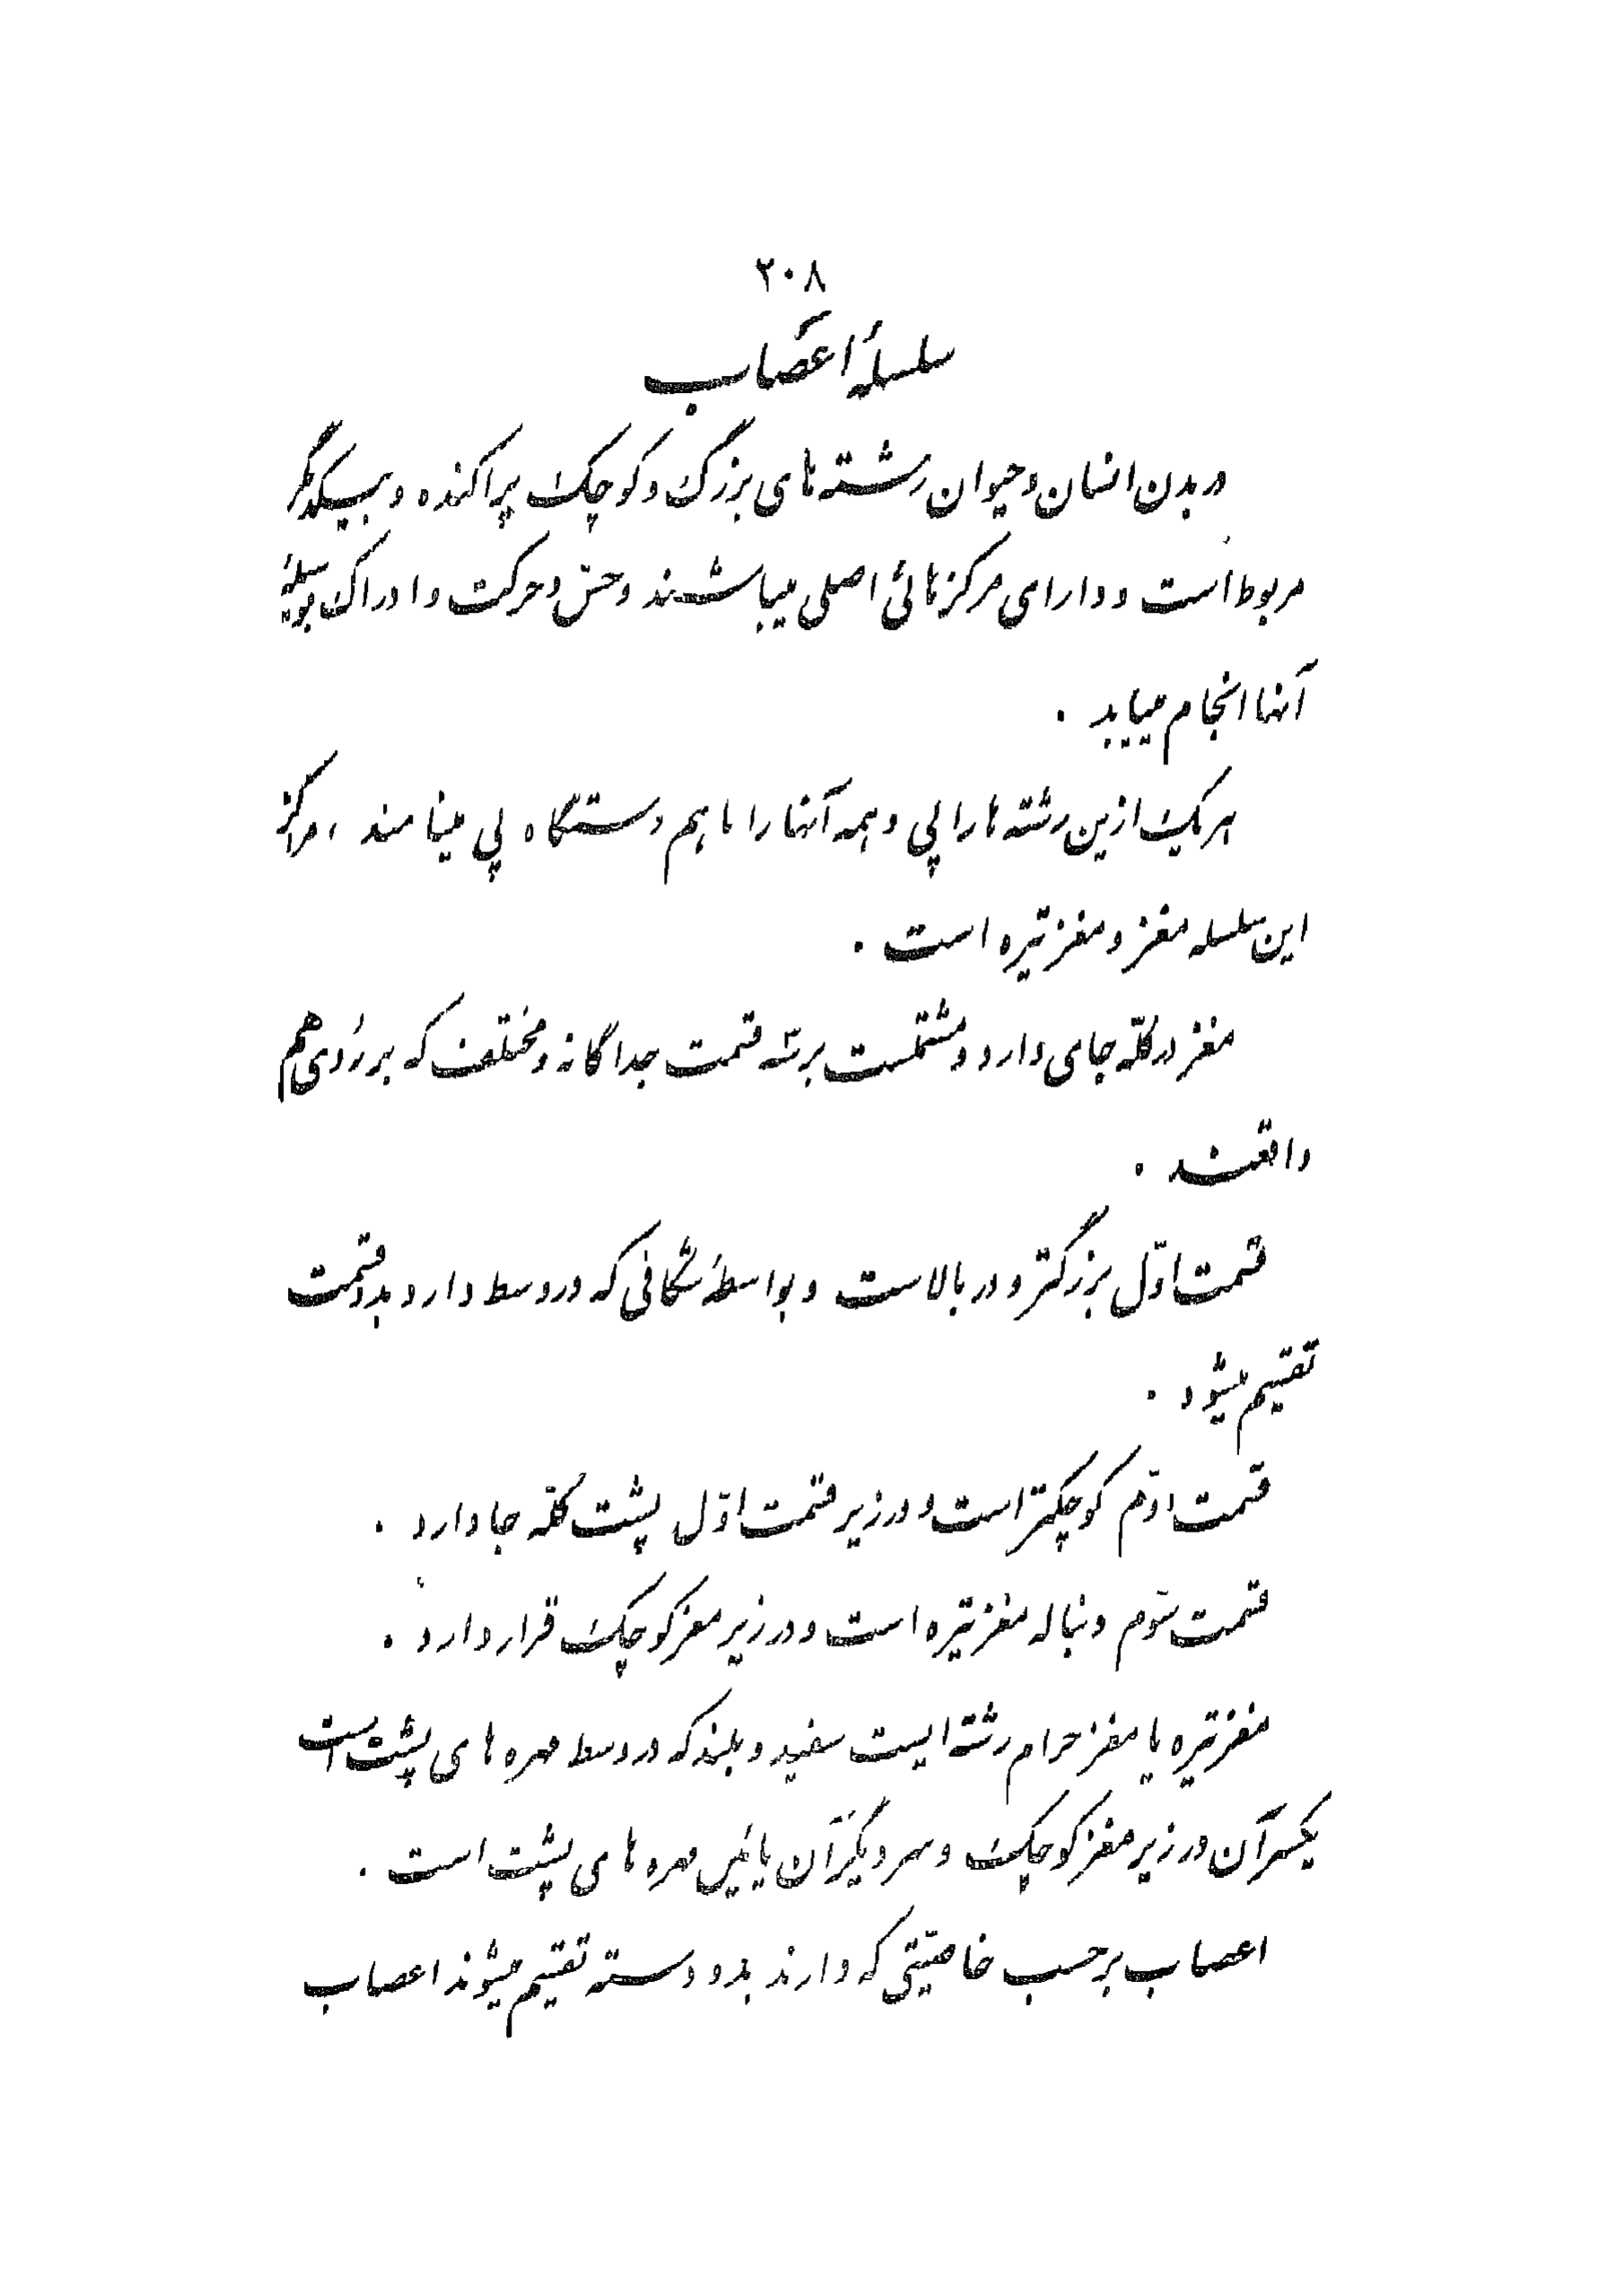 ۲۰۸
سلسلهٔ اعصاب
در بدن انسان و حیوان رشته های بزرگ و کوچک پراکنده و بیکدیگر
مربوط است و دارای مرکزهائی اصلی میباشند و حسّ و حرکت و ادراک بوسیلهٔ
آنها انجام مییابد .
هر یک ازین رشته ها را پی و همه آنها را با هم دستگاه پی مینامند ، مراکز
این سلسله مغز و مغز تیره است .
مغز در کلّه جای دارد و مشتملست بر سه قسمت جداگانه و مختلف که بر روی هم
واقعند .
قسمت اوّل بزرگتر و در بالاست و بواسطهٔ شکافی که در وسط دارد بدو قسمت
تقسیم میشود .
قسمت دوّم کوچکتر است و در زیر قسمت اوّل پشت کلّه جا دارد .
قسمت سوّم دنباله مغز تیره است و در زیر مغز کوچک قرار دارد .
مغز تیره یا مغز حرام رشته ایست سفید و بلند که در وسط مهره های پشت است
یکسر آن در زیر مغز کوچک و سر دیگر آن پائین مهره های پشت است .
اعصاب بر حسب خاصیّتی که دارند بدو دسته تقسیم میشوند اعصاب